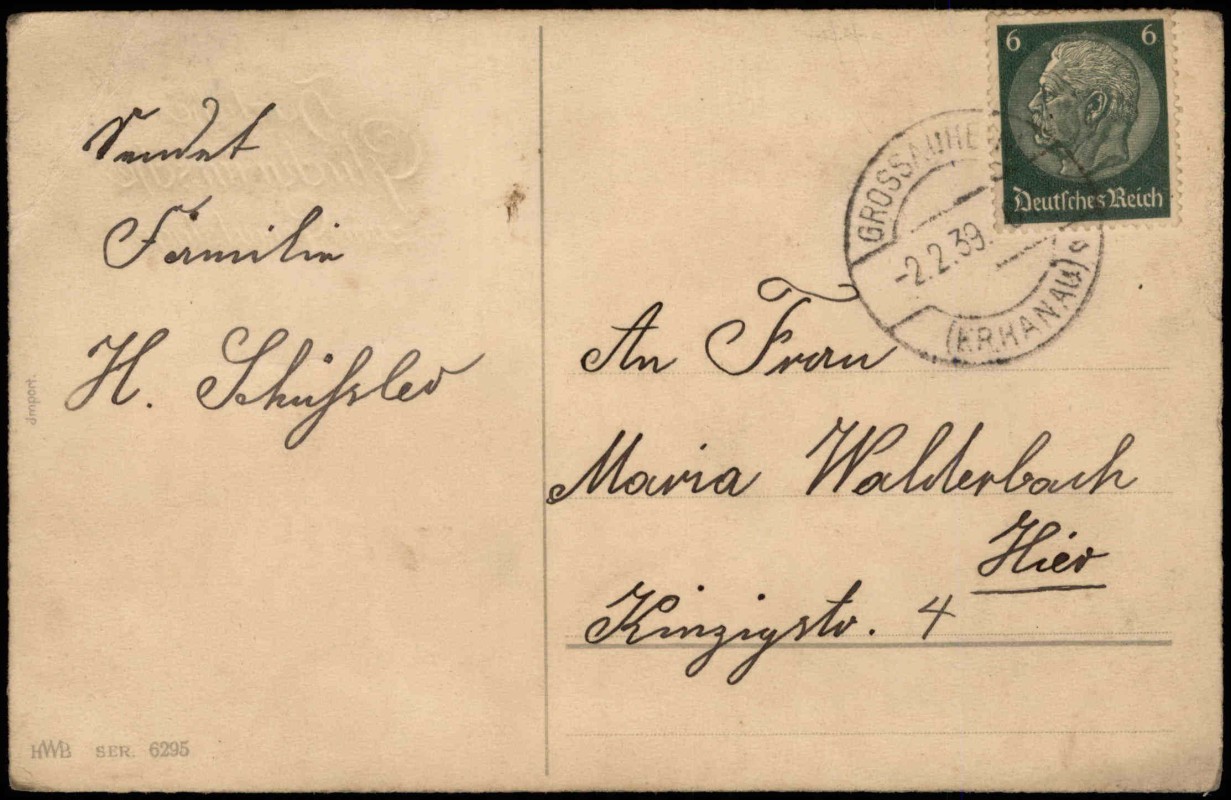 Sendet
Familie
H. Schüssler
Jmport.
HWB SER. 6295
6 6
Deutsches Reich
GROSSAUHE
-2.2.39.
(KR.HANAU)
An Frau
Maria Walderbach
Hier
Kinzigstr. 4